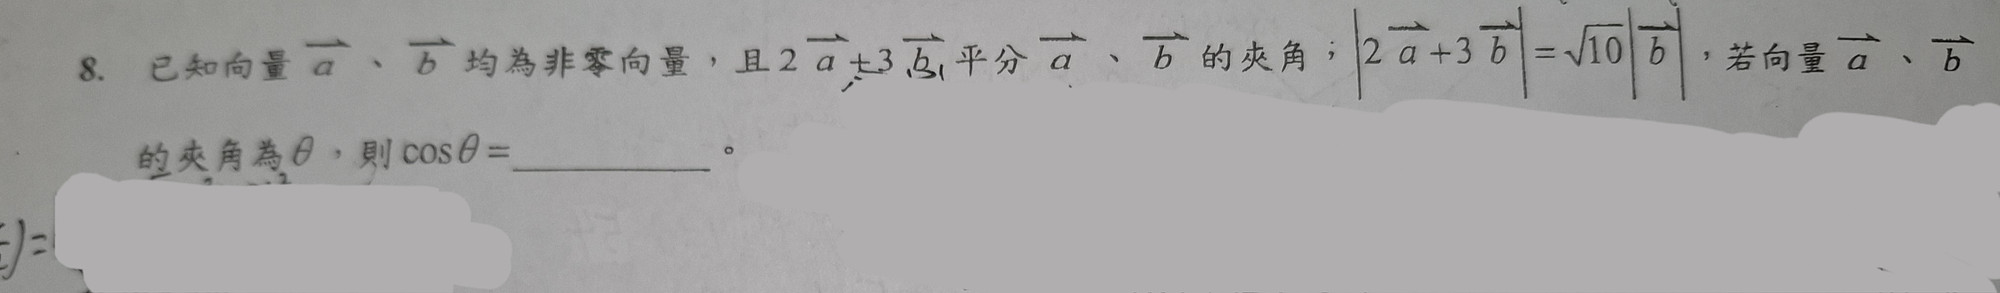 8. 已知向量 $\overrightarrow{a}$、$\overrightarrow{b}$ 均為非零向量，且 $2\overrightarrow{a}+3\overrightarrow{b}$ 平分 $\overrightarrow{a}$、$\overrightarrow{b}$ 的夾角；$\left|2\overrightarrow{a}+3\overrightarrow{b}\right|=\sqrt{10}\left|\overrightarrow{b}\right|$，若向量 $\overrightarrow{a}$、$\overrightarrow{b}$
的夾角為θ，則 cosθ=__________。
)=